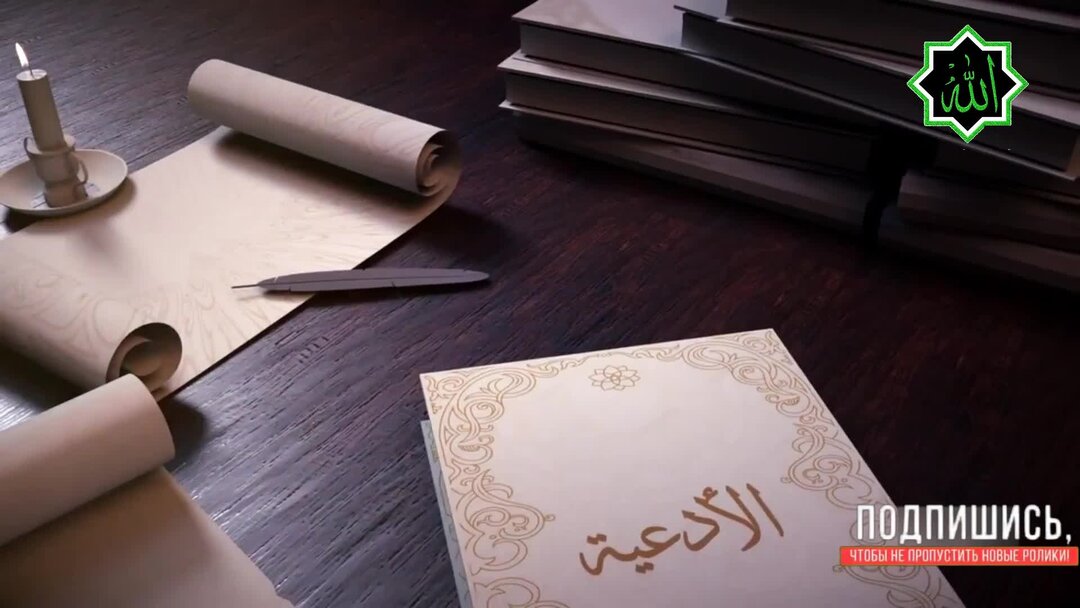 الله
الأدعية
ПОДПИШИСЬ,
ЧТОБЫ НЕ ПРОПУСТИТЬ НОВЫЕ РОЛИКИ!